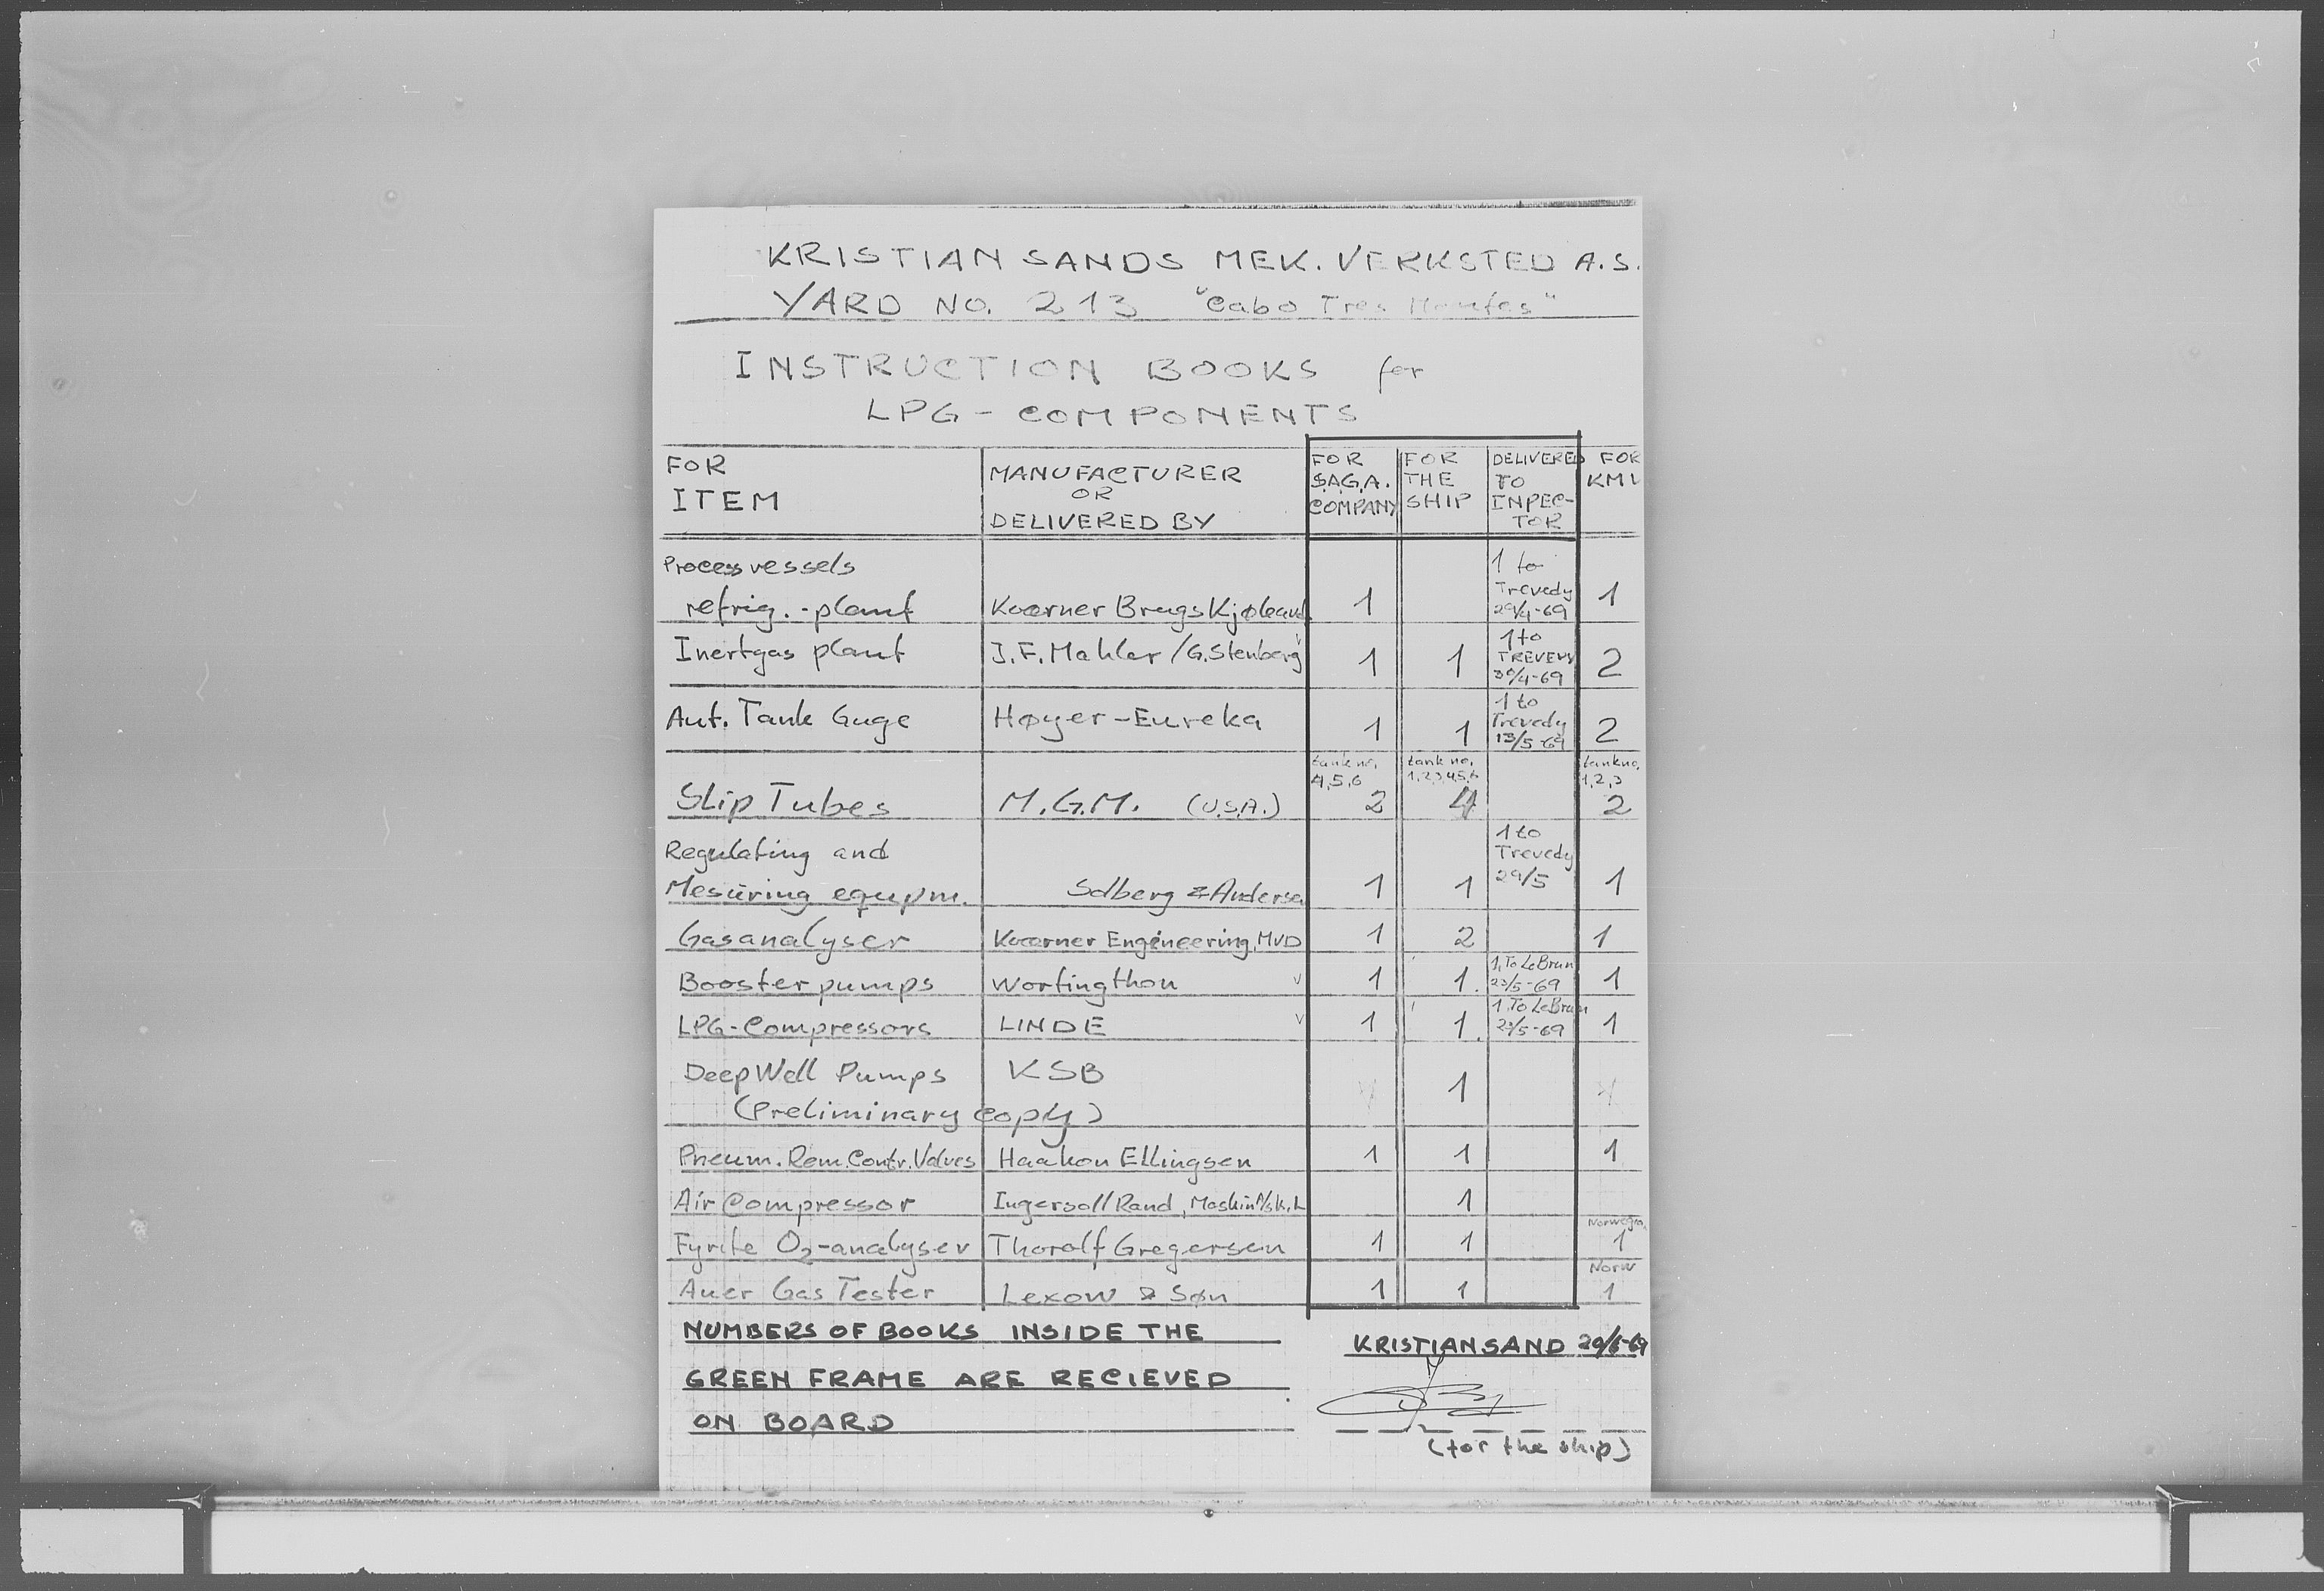 KRISTIANSANDS MEK. VERKSTED A.S.
YARD NO. 213 "Cabo Tres Montes"
INSTRUCTION BOOKS for
LPG - COMPONENTS
FOR ITEM | MANUFACTURER OR DELIVERED BY | FOR S.A.G.A. COMPANY | FOR THE SHIP | DELIVERED TO INPEC-TOR | FOR KMV
Process vessels refrig.-plant | Kværner Brugs Kjøleavd. | 1 | | 1 to Trevedy 29/4-69 | 1
Inertgas plant | J.F. Mahler / G. Stenberg | 1 | 1 | 1 to 30/4-69 | 2
Aut. Tank Guge | Høyer-Eureka | 1 | 1 | 1 to Trevedy 13/5-69 | 2
Slip Tubes | M.G.M. (U.S.A.) | tank no. 4,5,6 2 | tank no. 1,2,3,4,5,6 4 | | tank no. 1,2,3 2
Regulating and Mesuring equpm. | Solberg & Anderse | 1 | 1 | 1 to Trevedy 29/5 | 1
Gasanalyser | Kværner Engineering, MVD | 1 | 2 | | 1
Booster pumps | Wortingthon v | 1 | 1. | 1. To LeBrun 23/5-69 | 1
LPG-Compressors | LINDE v | 1 | 1. | 1. To LeBrun 23/5-69 | 1
Deep Well Pumps (Preliminary copy) | KSB | | 1 | |
Pneum. Rem. Contr. Valves | Haakon Ellingsen | 1 | 1 | | 1
Air Compressor | Ingersoll Rand, Maskin A/S K.L | | 1 | |
Fyrite O2-analyser | Thoralf Gregersen | 1 | 1 | | Norwegn. 1
Auer Gas Tester | Lexow & Søn | 1 | 1 | | Norw 1
NUMBERS OF BOOKS INSIDE THE
GREEN FRAME ARE RECIEVED
ON BOARD
KRISTIANSAND 20/6-69
(for the ship)